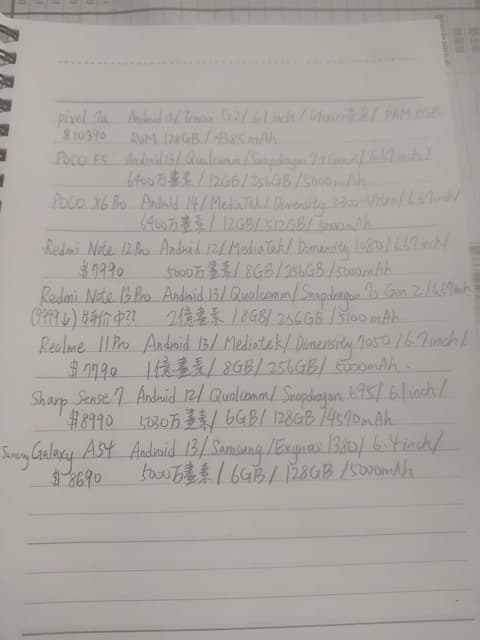 Pixel 7a Android 13/ Tensor G2/ 6.1 inch/ 6400万畫素/ RAM 8GB
$10390 ROM 128GB/ 4385 mAh
POCO F5 Android 13/ Qualcomm/ Snapdragon 7+ Gen 2/ 6.67 inch/
6400万畫素/ 12GB/ 256GB/ 5000mAh
POCO X6 Pro Android 14/ MediaTek/ Dimensity 8300-Ultra/ 6.67 inch/
6400万畫素/ 12GB/ 512GB/ 5000mAh
Redmi Note 12 Pro Android 12/ MediaTek/ Dimensity 1080/ 6.67 inch/
$7990 5000万畫素/ 8GB/ 256GB/ 5000mAh
Redmi Note 13 Pro Android 13/ Qualcomm/ Snapdragon 7s Gen 2/ 6.67 inch
(9999↓) 特价中?? 2億畫素/ 8GB/ 256GB/ 5100mAh
Realme 11 Pro Android 13/ Mediatek/ Dimensity 7050/ 6.7 inch/
$7790 1億畫素/ 8GB/ 256GB/ 5000mAh.
Sharp Sense 7 Android 12/ Qualcomm/ Snapdragon 695/ 6.1 inch/
$8990 5030万畫素/ 6GB/ 128GB/ 4570mAh
Samsung Galaxy A54 Android 13/ Samsung/ Exynos 1380/ 6.4 inch/
$8690 5000万畫素/ 6GB/ 128GB/ 5000mAh